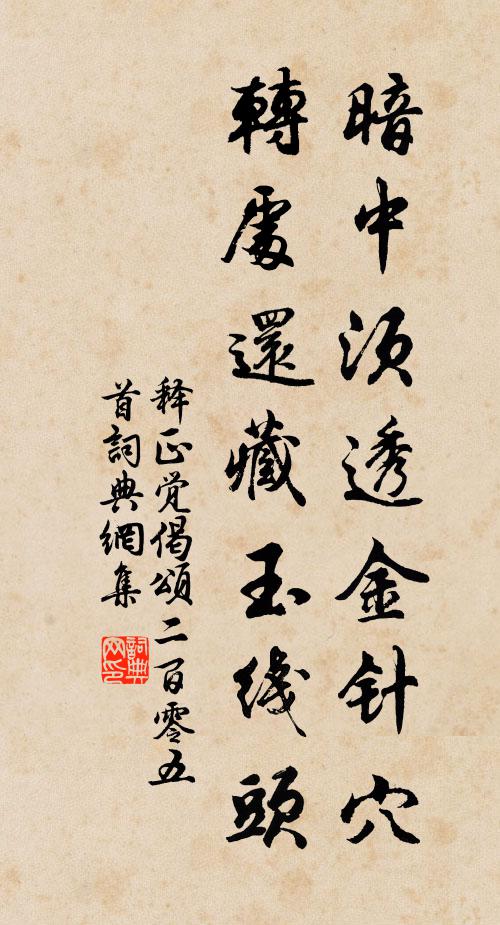 暗中须透金针穴
轉處還藏玉线頭
释正觉偈頌二百零五
首詞典網集
詞典网印